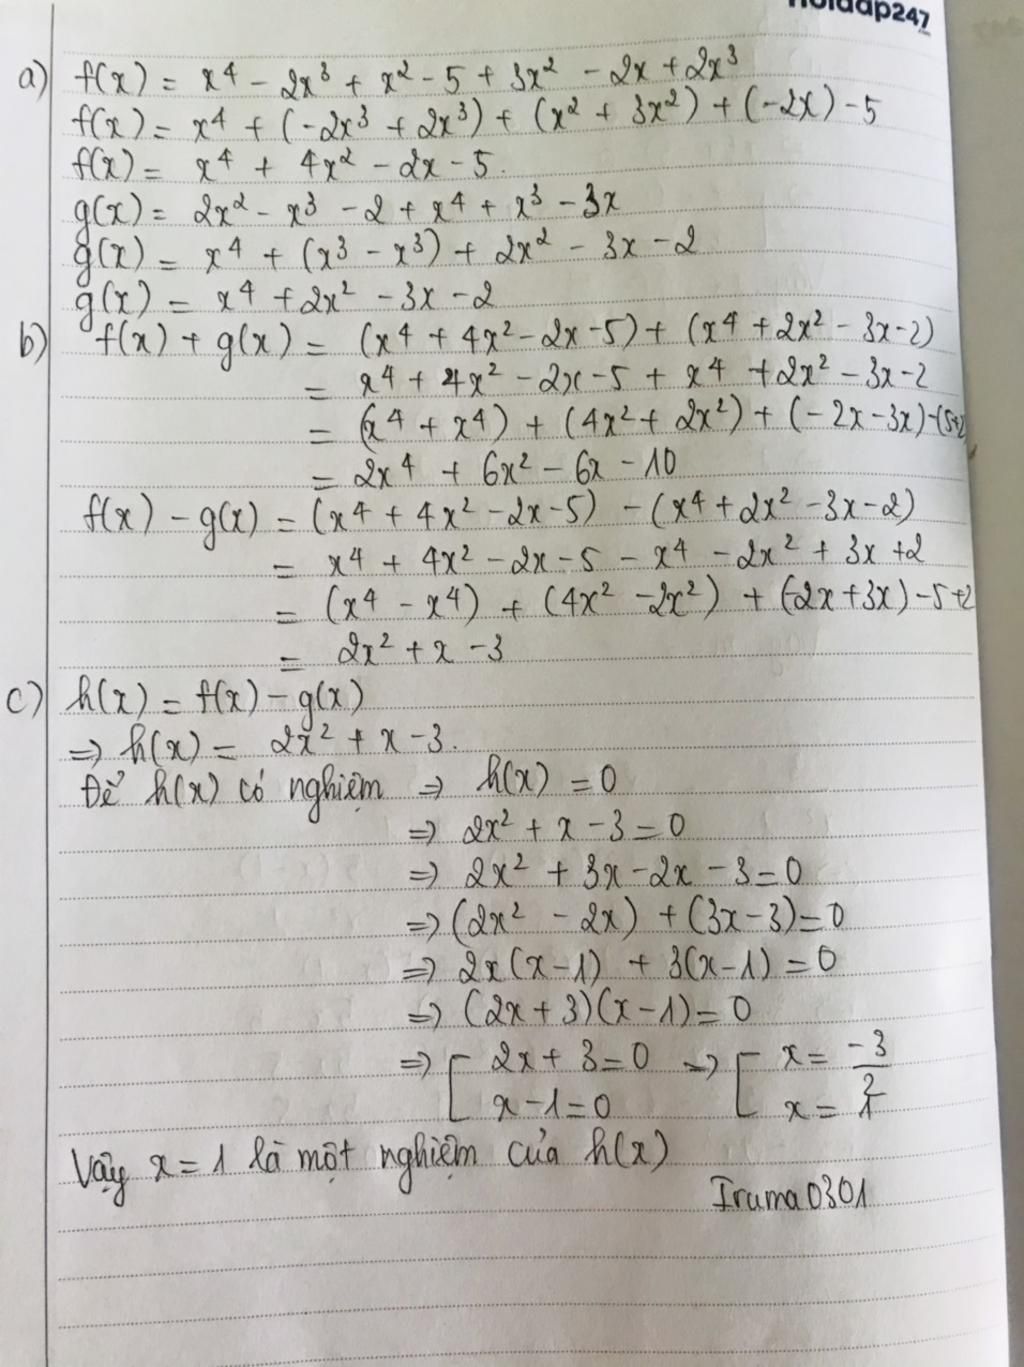 hoidap247
a) f(x) = x⁴ - 2x³ + x² - 5 + 3x² - 2x + 2x³
f(x) = x⁴ + (-2x³ + 2x³) + (x² + 3x²) + (-2x) - 5
f(x) = x⁴ + 4x² - 2x - 5.
g(x) = 2x² - x³ - 2 + x⁴ + x³ - 3x
g(x) = x⁴ + (x³ - x³) + 2x² - 3x - 2
g(x) = x⁴ + 2x² - 3x - 2
b) f(x) + g(x) = (x⁴ + 4x² - 2x - 5) + (x⁴ + 2x² - 3x - 2)
= x⁴ + 4x² - 2x - 5 + x⁴ + 2x² - 3x - 2
= (x⁴ + x⁴) + (4x² + 2x²) + (-2x - 3x) - (5+2)
= 2x⁴ + 6x² - 6x - 10
f(x) - g(x) = (x⁴ + 4x² - 2x - 5) - (x⁴ + 2x² - 3x - 2)
= x⁴ + 4x² - 2x - 5 - x⁴ - 2x² + 3x + 2
= (x⁴ - x⁴) + (4x² - 2x²) + (-2x + 3x) - 5 + 2
= 2x² + x - 3
c) h(x) = f(x) - g(x)
=> h(x) = 2x² + x - 3.
Để h(x) có nghiệm => h(x) = 0
=> 2x² + x - 3 = 0
=> 2x² + 3x - 2x - 3 = 0
=> (2x² - 2x) + (3x - 3) = 0
=> 2x(x - 1) + 3(x - 1) = 0
=> (2x + 3)(x - 1) = 0
=> [ 2x + 3 = 0 => [ x = -3/2
x - 1 = 0 x = 1
Vậy x = 1 là một nghiệm của h(x)
Iruma0301